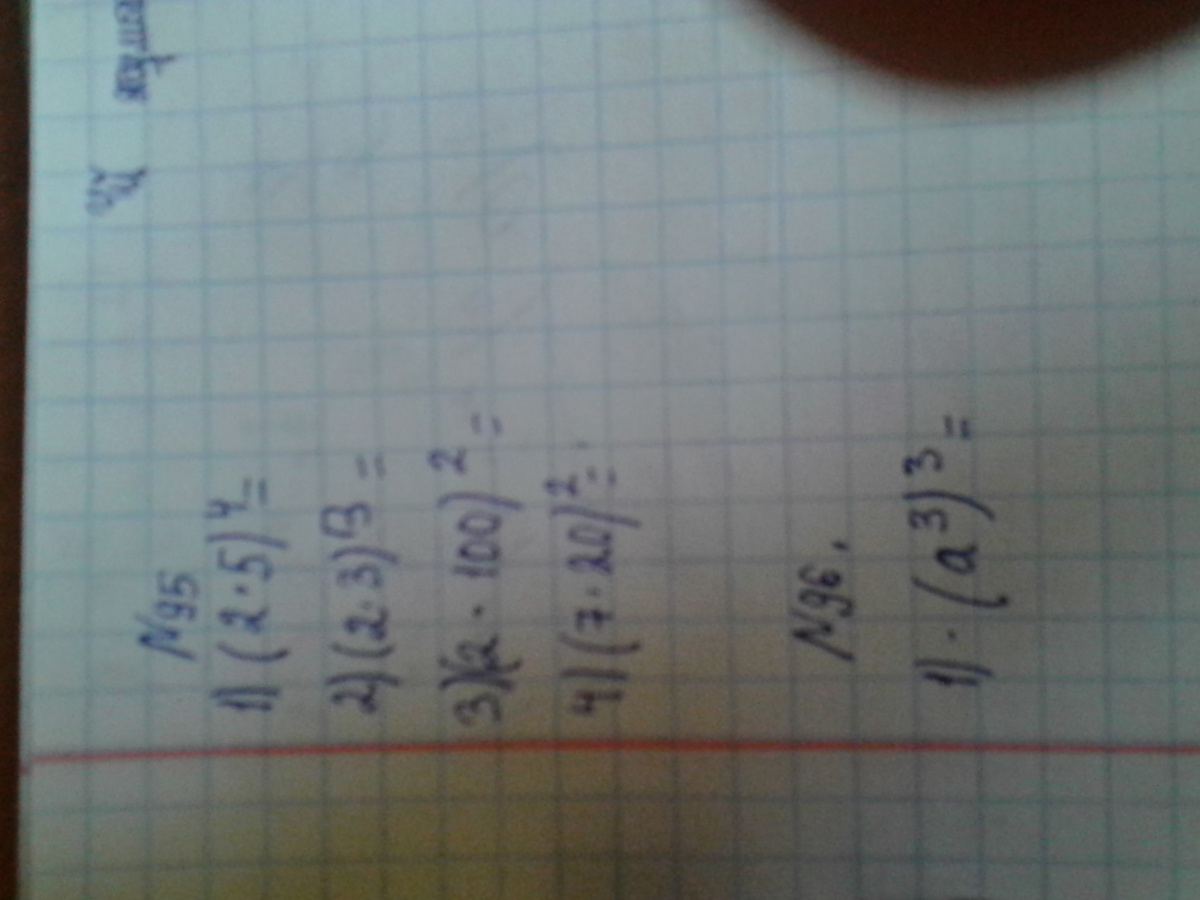 N95
1) (2·5)⁴=
2) (2·3)³=
3) (2·100)²=
4) (7·20)²=
N96.
1)·(a³)³=